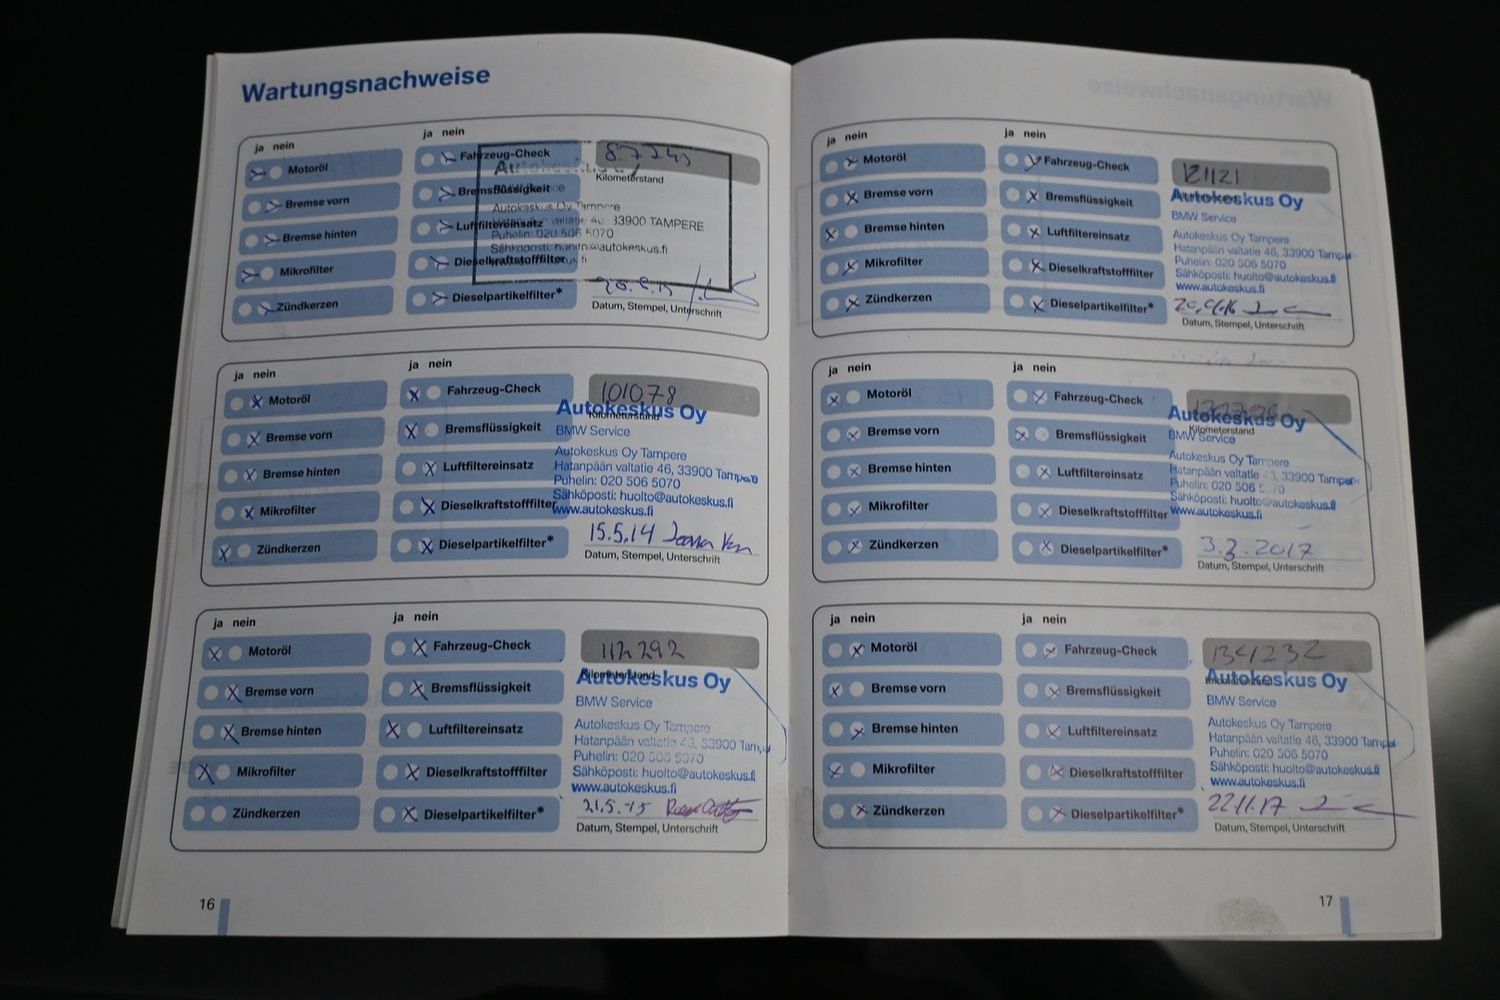 Wartungsnachweise
ja nein
ja nein
Motoröl
Bremse vorn
Bremse hinten
Mikrofilter
Zündkerzen
Fahrzeug-Check
Bremsflüssigkeit
Luftfiltereinsatz
Dieselkraftstofffilter
Dieselpartikelfilter*
Kilometerstand
Autokeskus Oy Tampere
33900 TAMPERE
Puhelin: 020 506 5070
Sähköposti: huolto@autokeskus.fi
Datum, Stempel, Unterschrift
ja nein
ja nein
Motoröl
Bremse vorn
Bremse hinten
Mikrofilter
Zündkerzen
Fahrzeug-Check
Bremsflüssigkeit
Luftfiltereinsatz
Dieselkraftstofffilter
Dieselpartikelfilter*
101078
Kilometerstand
Autokeskus Oy
BMW Service
Autokeskus Oy Tampere
Hatanpään valtatie 46, 33900 Tampere
Puhelin: 020 506 5070
Sähköposti: huolto@autokeskus.fi
www.autokeskus.fi
15.5.14
Datum, Stempel, Unterschrift
ja nein
ja nein
Motoröl
Bremse vorn
Bremse hinten
Mikrofilter
Zündkerzen
Fahrzeug-Check
Bremsflüssigkeit
Luftfiltereinsatz
Dieselkraftstofffilter
Dieselpartikelfilter*
112292
Kilometerstand
Autokeskus Oy
BMW Service
Autokeskus Oy Tampere
Hatanpään valtatie 46, 33900 Tampere
Puhelin: 020 506 5070
Sähköposti: huolto@autokeskus.fi
www.autokeskus.fi
21.5.15
Datum, Stempel, Unterschrift
16
ja nein
ja nein
Motoröl
Bremse vorn
Bremse hinten
Mikrofilter
Zündkerzen
Fahrzeug-Check
Bremsflüssigkeit
Luftfiltereinsatz
Dieselkraftstofffilter
Dieselpartikelfilter*
121121
Autokeskus Oy
BMW Service
Autokeskus Oy Tampere
Hatanpään valtatie 46, 33900 Tampere
Puhelin: 020 506 5070
Sähköposti: huolto@autokeskus.fi
www.autokeskus.fi
Datum, Stempel, Unterschrift
ja nein
ja nein
Motoröl
Bremse vorn
Bremse hinten
Mikrofilter
Zündkerzen
Fahrzeug-Check
Bremsflüssigkeit
Luftfiltereinsatz
Dieselkraftstofffilter
Dieselpartikelfilter*
Autokeskus Oy
Kilometerstand
BMW Service
Autokeskus Oy Tampere
Hatanpään valtatie 33900 Tampere
Puhelin: 020 506
Sähköposti: huolto@autokeskus.fi
www.autokeskus.fi
3.3.2017
Datum, Stempel, Unterschrift
ja nein
ja nein
Motoröl
Bremse vorn
Bremse hinten
Mikrofilter
Zündkerzen
Fahrzeug-Check
Bremsflüssigkeit
Luftfiltereinsatz
Dieselkraftstofffilter
Dieselpartikelfilter*
134232
Autokeskus Oy
BMW Service
Autokeskus Oy Tampere
Hatanpään valtatie 46, 33900 Tampere
Puhelin: 020 506 5070
Sähköposti: huolto@autokeskus.fi
www.autokeskus.fi
22.11.17
Datum, Stempel, Unterschrift
17